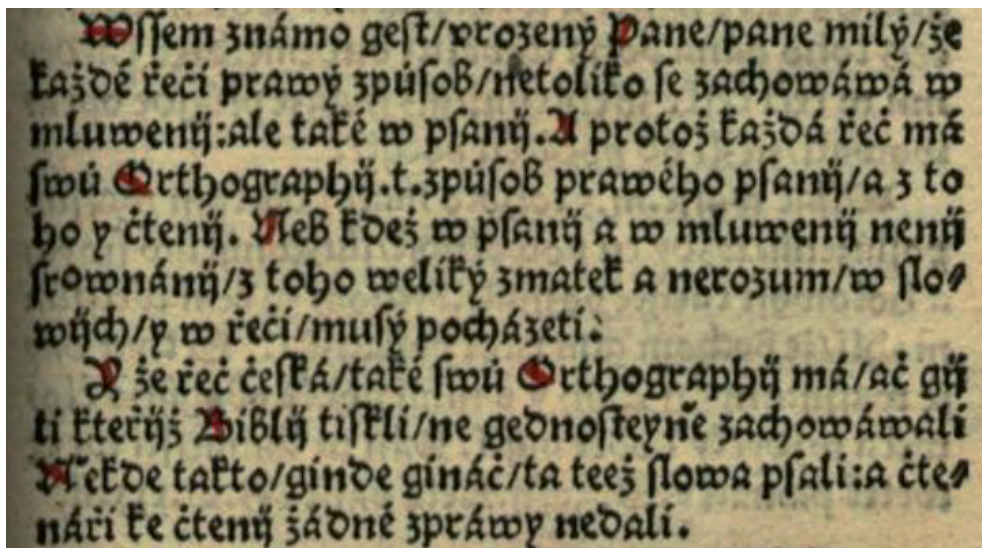 Wssem známo gest/vrozený Pane/pane milý/že
každé řeči prawý způsob/netoliko se zachowáwá w
mluwenij:ale také w psanij. A protož každá řeč má
swú Orthographij.t.způsob prawého psanij/a z to
ho y čtenij. Neb kdež w psanij a w mluwenij nenij
srownánij/z toho weliký zmatek a nerozum/w slo⸗
wijch/y w řeči/musý pocházeti:
Y že řeč česká/také swú Orthographij má/ač gij
ti kteřijž Biblij tiskli/ne gednosteyně zachowáwali
Někde takto/ginde gináč/ta teež slowa psali:a čte⸗
náři ke čtenij žádné zpráwy nedali.